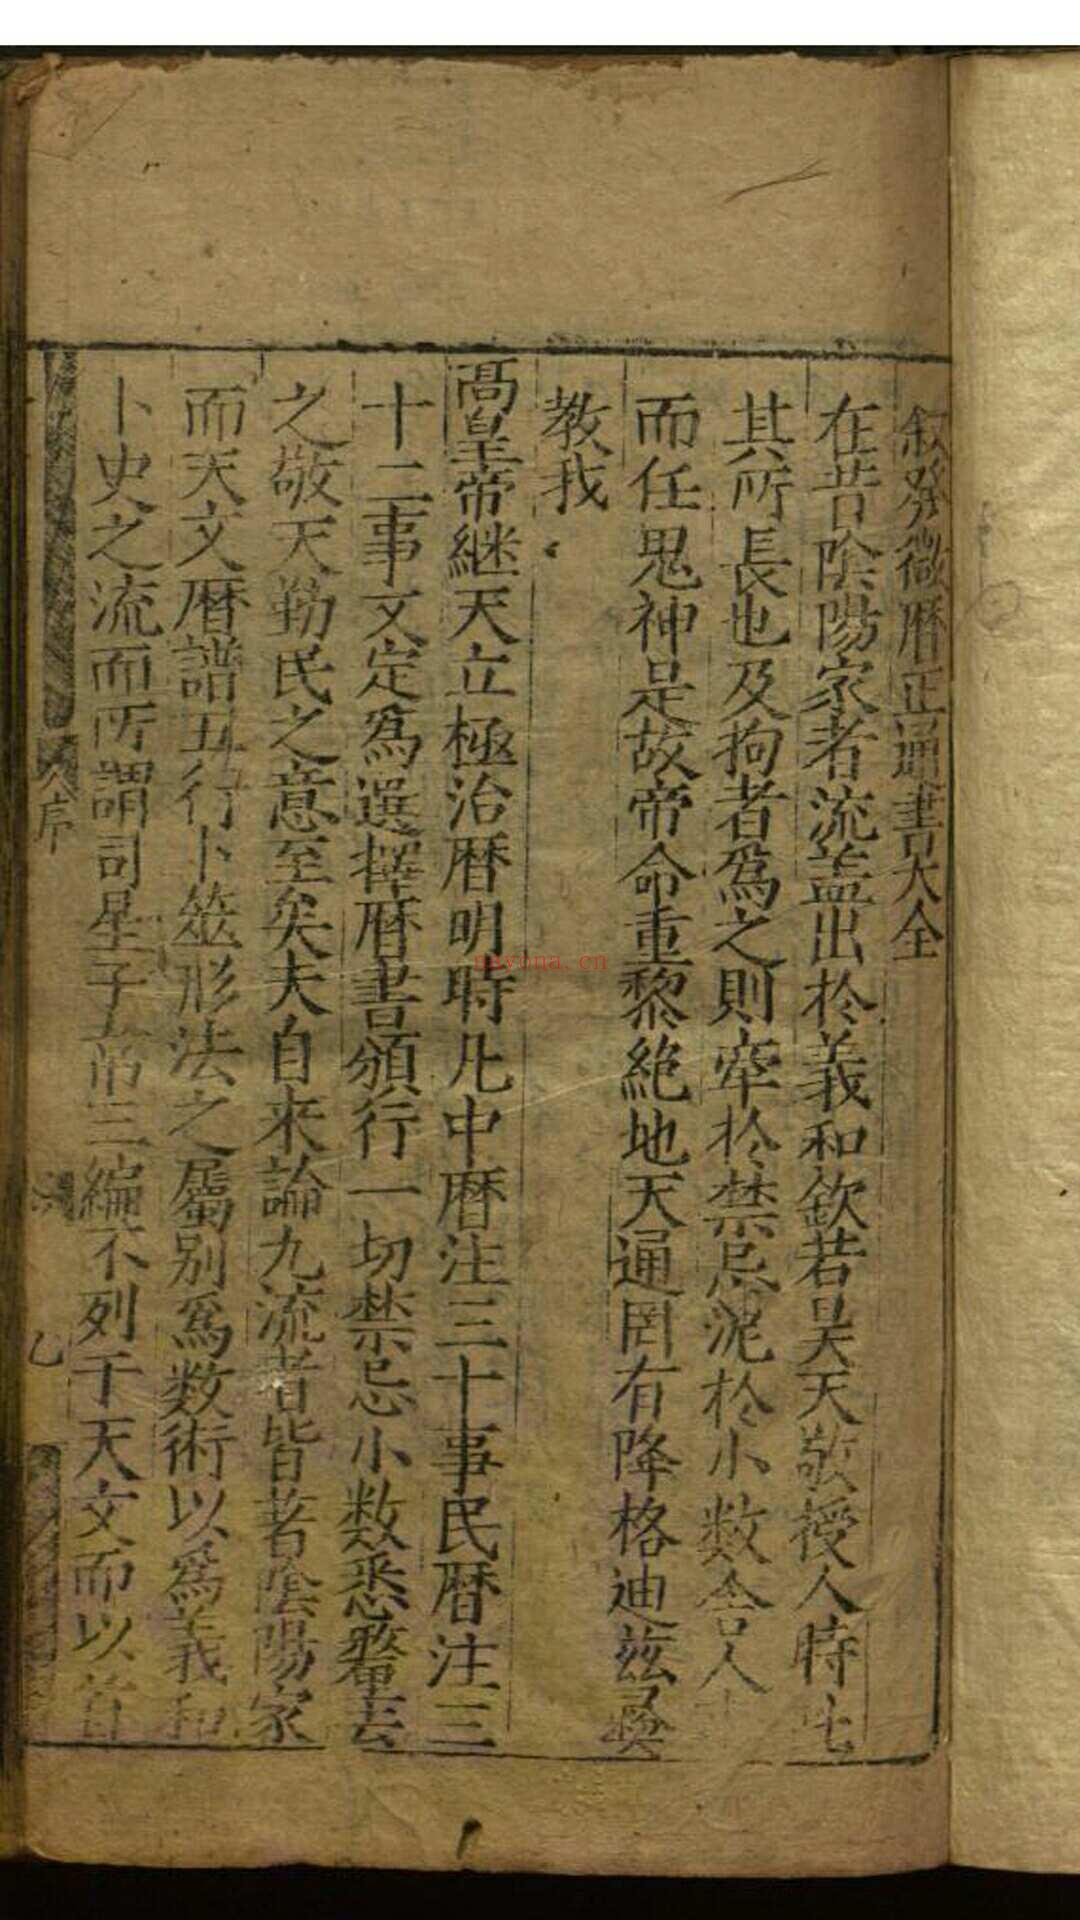 叙發微曆正通書大全
在昔陰陽家者流盖出於羲和欽若昊天敬授人時此
其所長也及拘者爲之則牽於禁忌泥於小数舍人
而任鬼神是故帝命重黎絶地天通罔有降格迪兹彛
教我
高皇帝継天立極治曆明時凡中曆注三十事民曆注三
十二事文定爲選擇曆書頒行一切禁忌小数悉釐去
之敬天勤民之意至矣夫自来論九流者皆著陰陽家
而天文曆譜五行卜筮形法之屬别爲数術以爲羲和
卜史之流而所謂司星子韋三編不列于天文而以首
序
乙
nwyona.cn